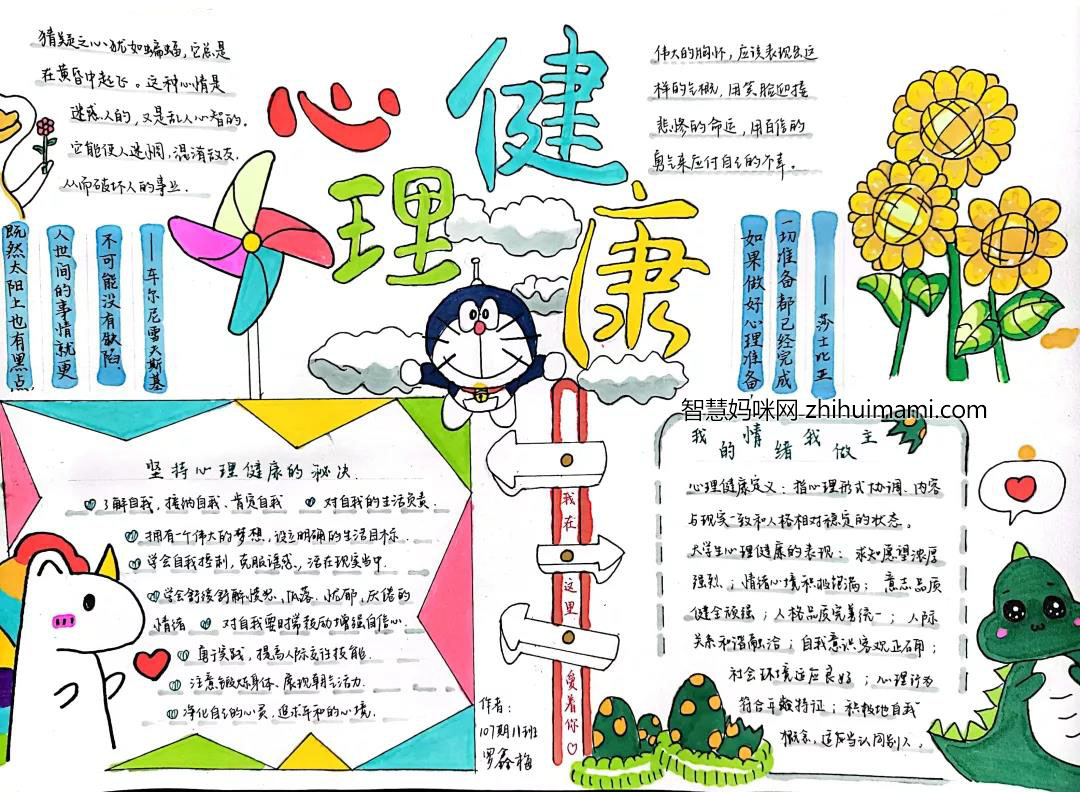 猜疑之心犹如蝙蝠,它总是
在黄昏中起飞。这种心情是
迷惑人的,又是乱人心智的。
它能使人迷惘,混淆敌友,
从而破坏人的事业.
心理健康
伟大的胸怀,应该表现出这
样的气概,用笑脸迎接
悲惨的命运,用自信的
勇气来应付自己的不幸。
既然太阳上也有黑点
人世间的事情就更
不可能没有缺陷.
——车尔尼雪夫斯基
如果做好心理准备
一切准备都已经完成
——莎士比亚
智慧妈咪网 zhihuimami.com
坚持心理健康的秘决.
了解自我,接纳自我、肯定自我
对自我的生活负责.
拥有一个伟大的梦想,设立明确的生活目标.
学会自我控制,克服诱惑,活在现实当中.
学会舒缓纾解愤怒、低落、忧郁、厌倦的
情绪
对自我要时常鼓励增强自信心.
勇于实践,提高人际交往技能.
注意锻炼身体、展现朝气活力.
净化自己的心灵,追求平和的心境.
我在
这里
爱着你
作者:
107期11班
罗鑫梅
我的情绪我做主
心理健康定义:指心理形式协调、内容
与现实一致和人格相对稳定的状态。
大学生心理健康的表现:求知愿望浓厚
强烈;情绪心境积极饱满;意志品质
健全顽强;人格品质完善统一;人际
关系和谐融洽;自我意识客观正确;
社会环境适应良好;心理行为
符合年龄特征;积极地自我
概念,这应当认同别人。